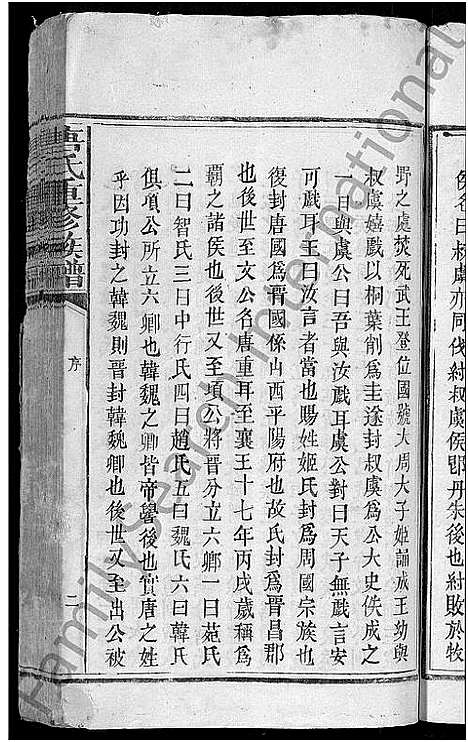 侯名曰叔虞亦同伐紂叔虞侯即丹朱後也紂敗於牧
野之處焚死武王登位國號大周大子姬誦成王幼與
叔虞嬉戲以桐葉削爲圭遂封叔虞爲公大史佚成之
一日與虞公曰吾與汝戲耳虞公對曰天子無戲言安
可戲耳王曰汝言者當也賜姓姬氏封爲周國宗族也
復封唐國爲晉國係山西平陽府也故氏封爲晉昌郡
也後世至文公名唐重耳至襄王十七年丙戌歲稱爲
霸之諸侯也後世又至頃公將晉分立六卿一曰范氏
二曰智氏三曰中行氏四曰趙氏五曰魏氏六曰韓氏
俱頃公所立六卿也韓魏之卿皆帝嚳後也實唐之姓
乎因功封之韓魏則晉封韓魏卿也後世又至出公被
唐氏重修族譜
序
二
FamilySearch International